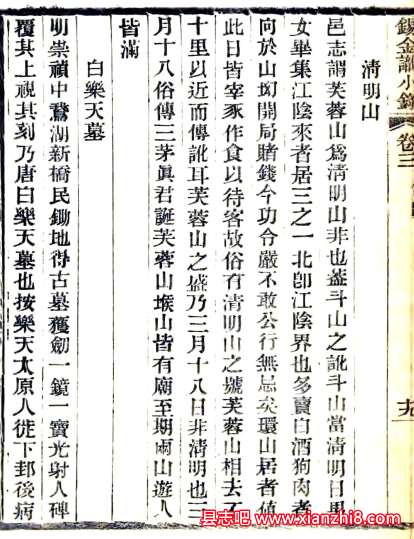 錫金識小錄 卷三
十九
清明山
邑志謂芙蓉山爲清明山非也蓋斗山之訛斗山當清明日男
女畢集江陰來者居三之一北卽江陰界也多賣白酒狗肉者
向於山幼開局賭錢今功令嚴不敢公行無忌矣環山居者値
此日皆宰豕作食以待客故俗有清明山之號芙蓉山相去不
十里以近而傳訛耳芙蓉山之盛乃三月十八日非清明也三
月十八俗傳三茅眞君誕芙蓉山堠山皆有廟至期兩山遊人
皆滿
白樂天墓
明崇禎中鵞湖新橋民鋤地得古墓獲劒一鏡一寶光射人碑
覆其上視其刻乃唐白樂天墓也按樂天太原人徙下邽後病
县志吧@www.xianzhi8.com